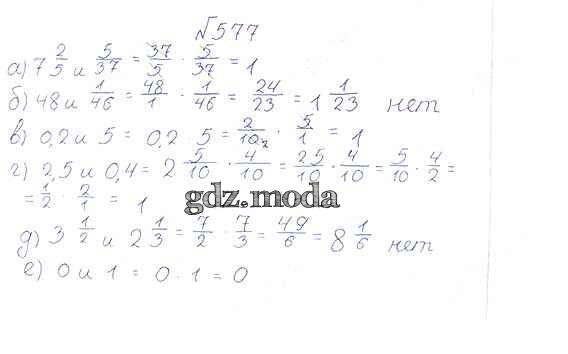 №577
а) 7 2/5 и 5/37 = 37/5 · 5/37 = 1
б) 48 и 1/46 = 48/1 · 1/46 = 24/23 = 1 1/23 нет
в) 0,2 и 5 = 0,2 5 = 2/10 · 5/1 = 1
г) 2,5 и 0,4 = 2 5/10 · 4/10 = 25/10 · 4/10 = 5/10 · 4/2 =
= 1/2 · 2/1 = 1
gdz.moda
д) 3 1/2 и 2 1/3 = 7/2 · 7/3 = 49/6 = 8 1/6 нет
е) 0 и 1 = 0 · 1 = 0